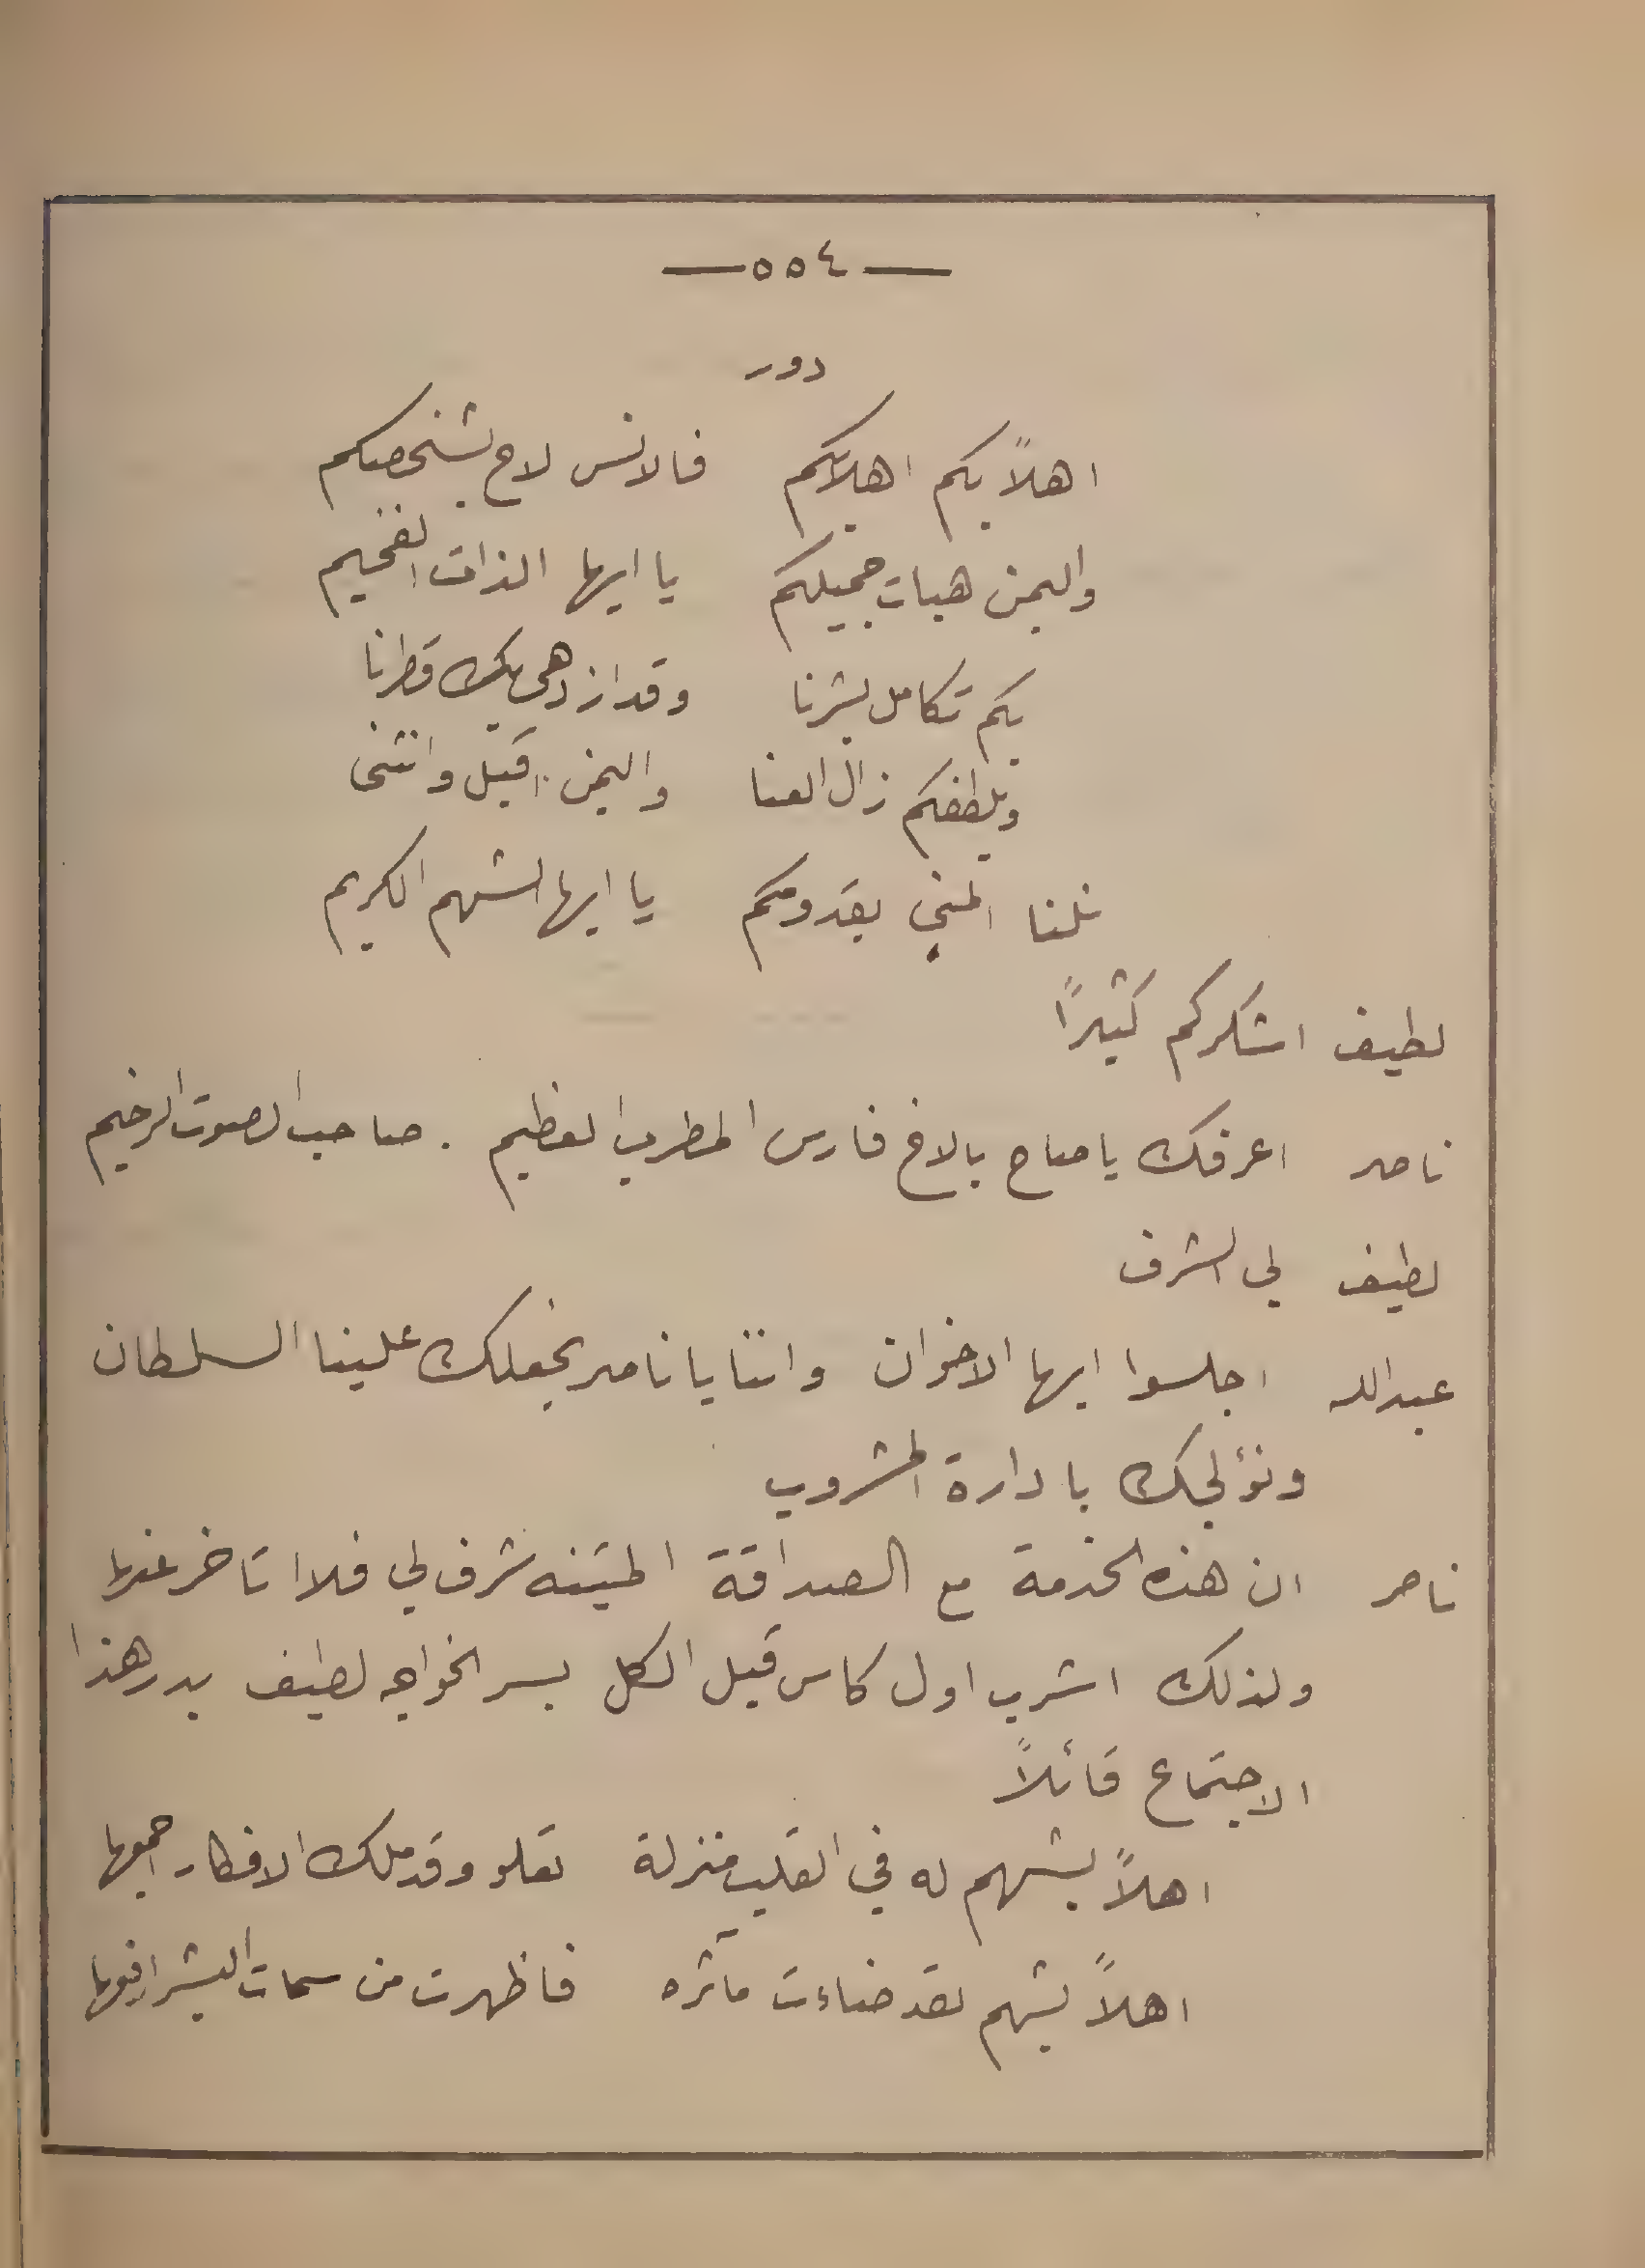 —٥٥٤—
دور
اهلاً بكم اهلا بكم فالانس لاح بشخصكم
واليمن هبات جميلكم يا ايها الذات الفخيم
بكم تكامل بشرنا وقد ازدهى بك قطرنا
وبلطفكم زال العنا واليمن اقبل وانثنى
نلنا المنى بقدومكم يا ايها الشهم الكريم
لطيف اشكركم كثيرًا
ناصر اعرفك يا صاح بالاخ فارس المطرب العظيم . صاحب الصوت الرخيم
لطيف لي الشرف
عبدالله اجلسوا ايها الاخوان واننا يا ناصر نجعلك علينا السلطان
ونؤليك بادارة المشروب
ناصر ان هذه الخدمة مع الصداقة المتينه شرف لي فلا اتاخر عنها
ولذلك اشرب اول كاس قبل الكل بسر الخواجه لطيف بدر هذا
الاجتماع قائلاً
اهلاً بشهم له في القلب منزلة تعلو وقد ملك الافكار اجمعها
اهلاً بشهم لقد ضاءت مآثره فاظهرت من سمات البشر ارفعها